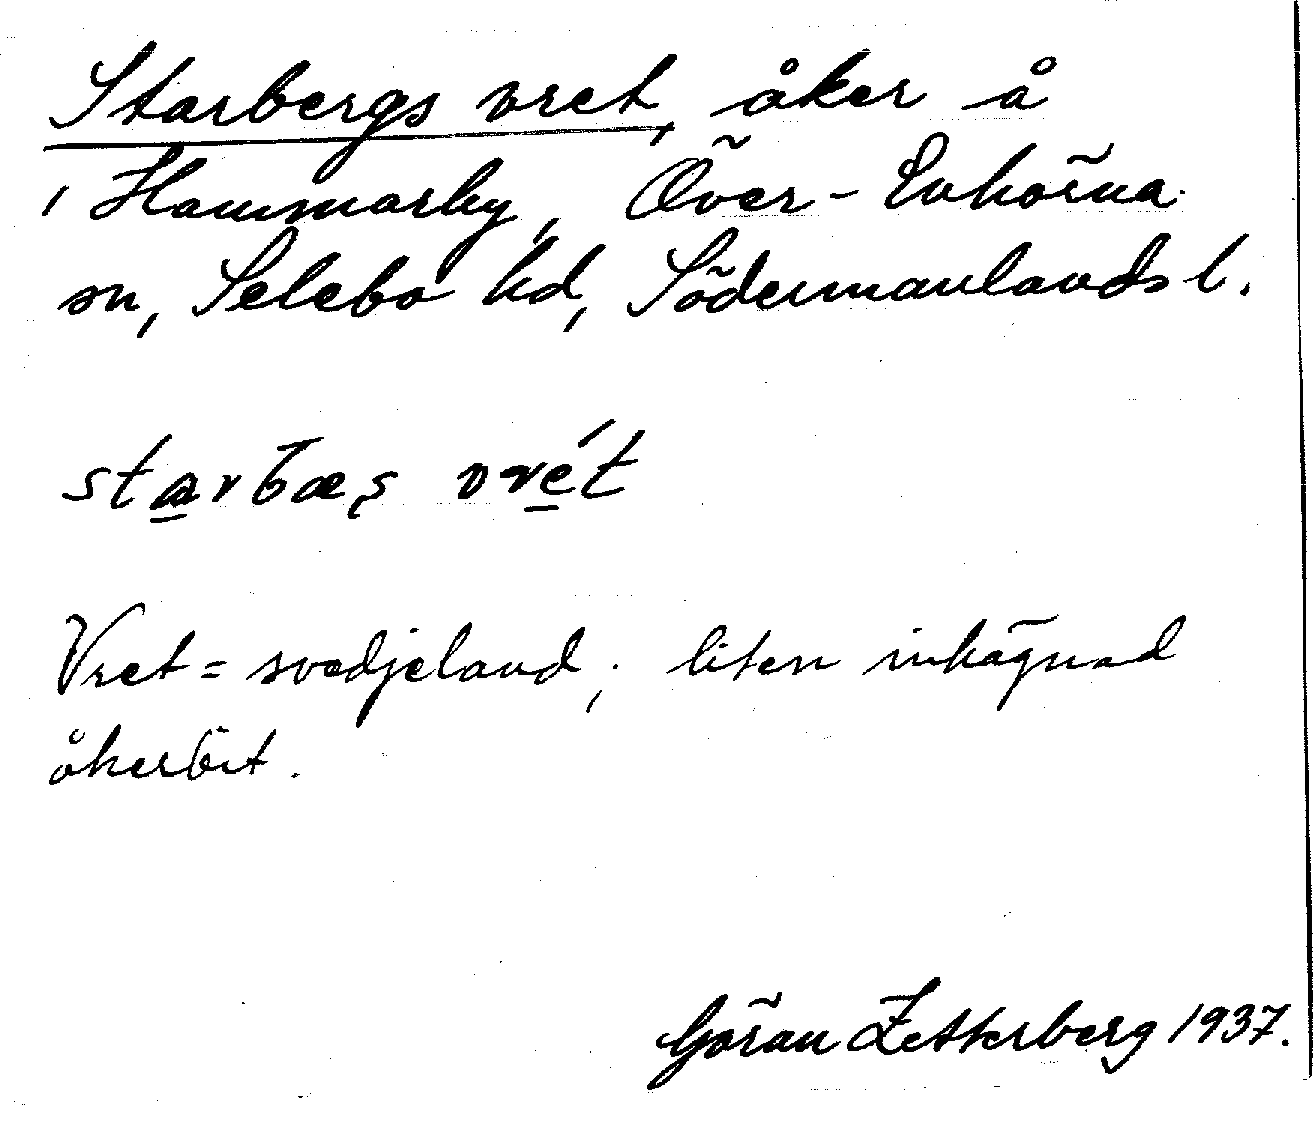 Starbergs vret, åker å
i Hammarby, Över-Enhörna
sn, Selebo hd, Södermanlands l.
starbæș vrét
Vret = svedjeland; liten inhägnad
åkerbit.
Göran Zetterberg 1937.